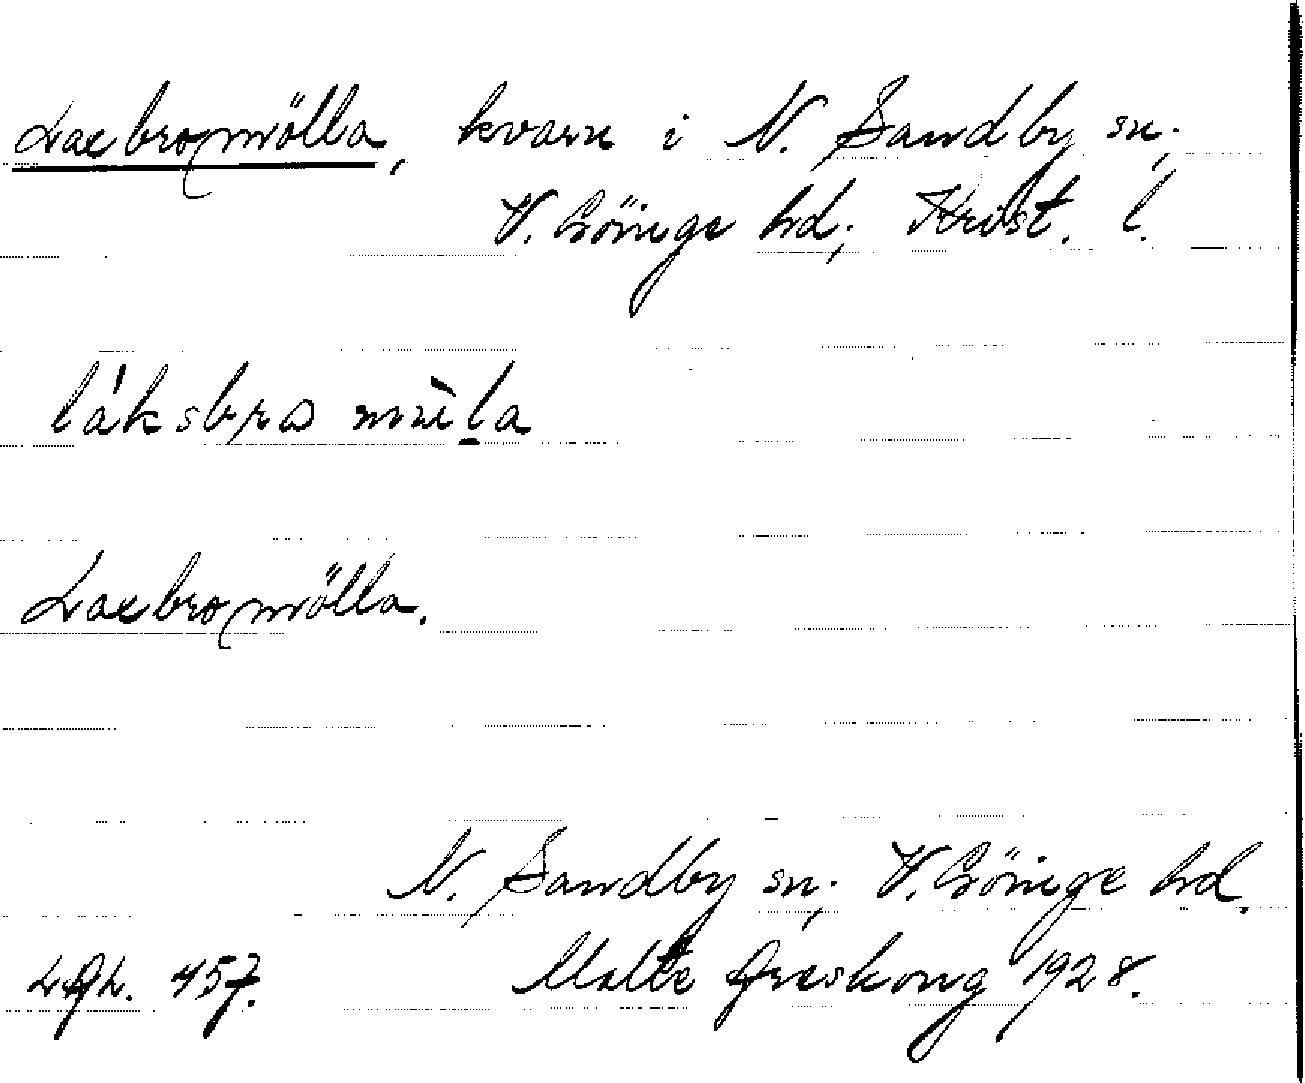 Laxbromölla, kvarn i N. Sandby sn;
V. Göinge hd; Krist. l.
láksbro mùla
Laxbromölla.
N. Sandby sn; V. Göinge hd.
457. Malte Areskoug 1928.